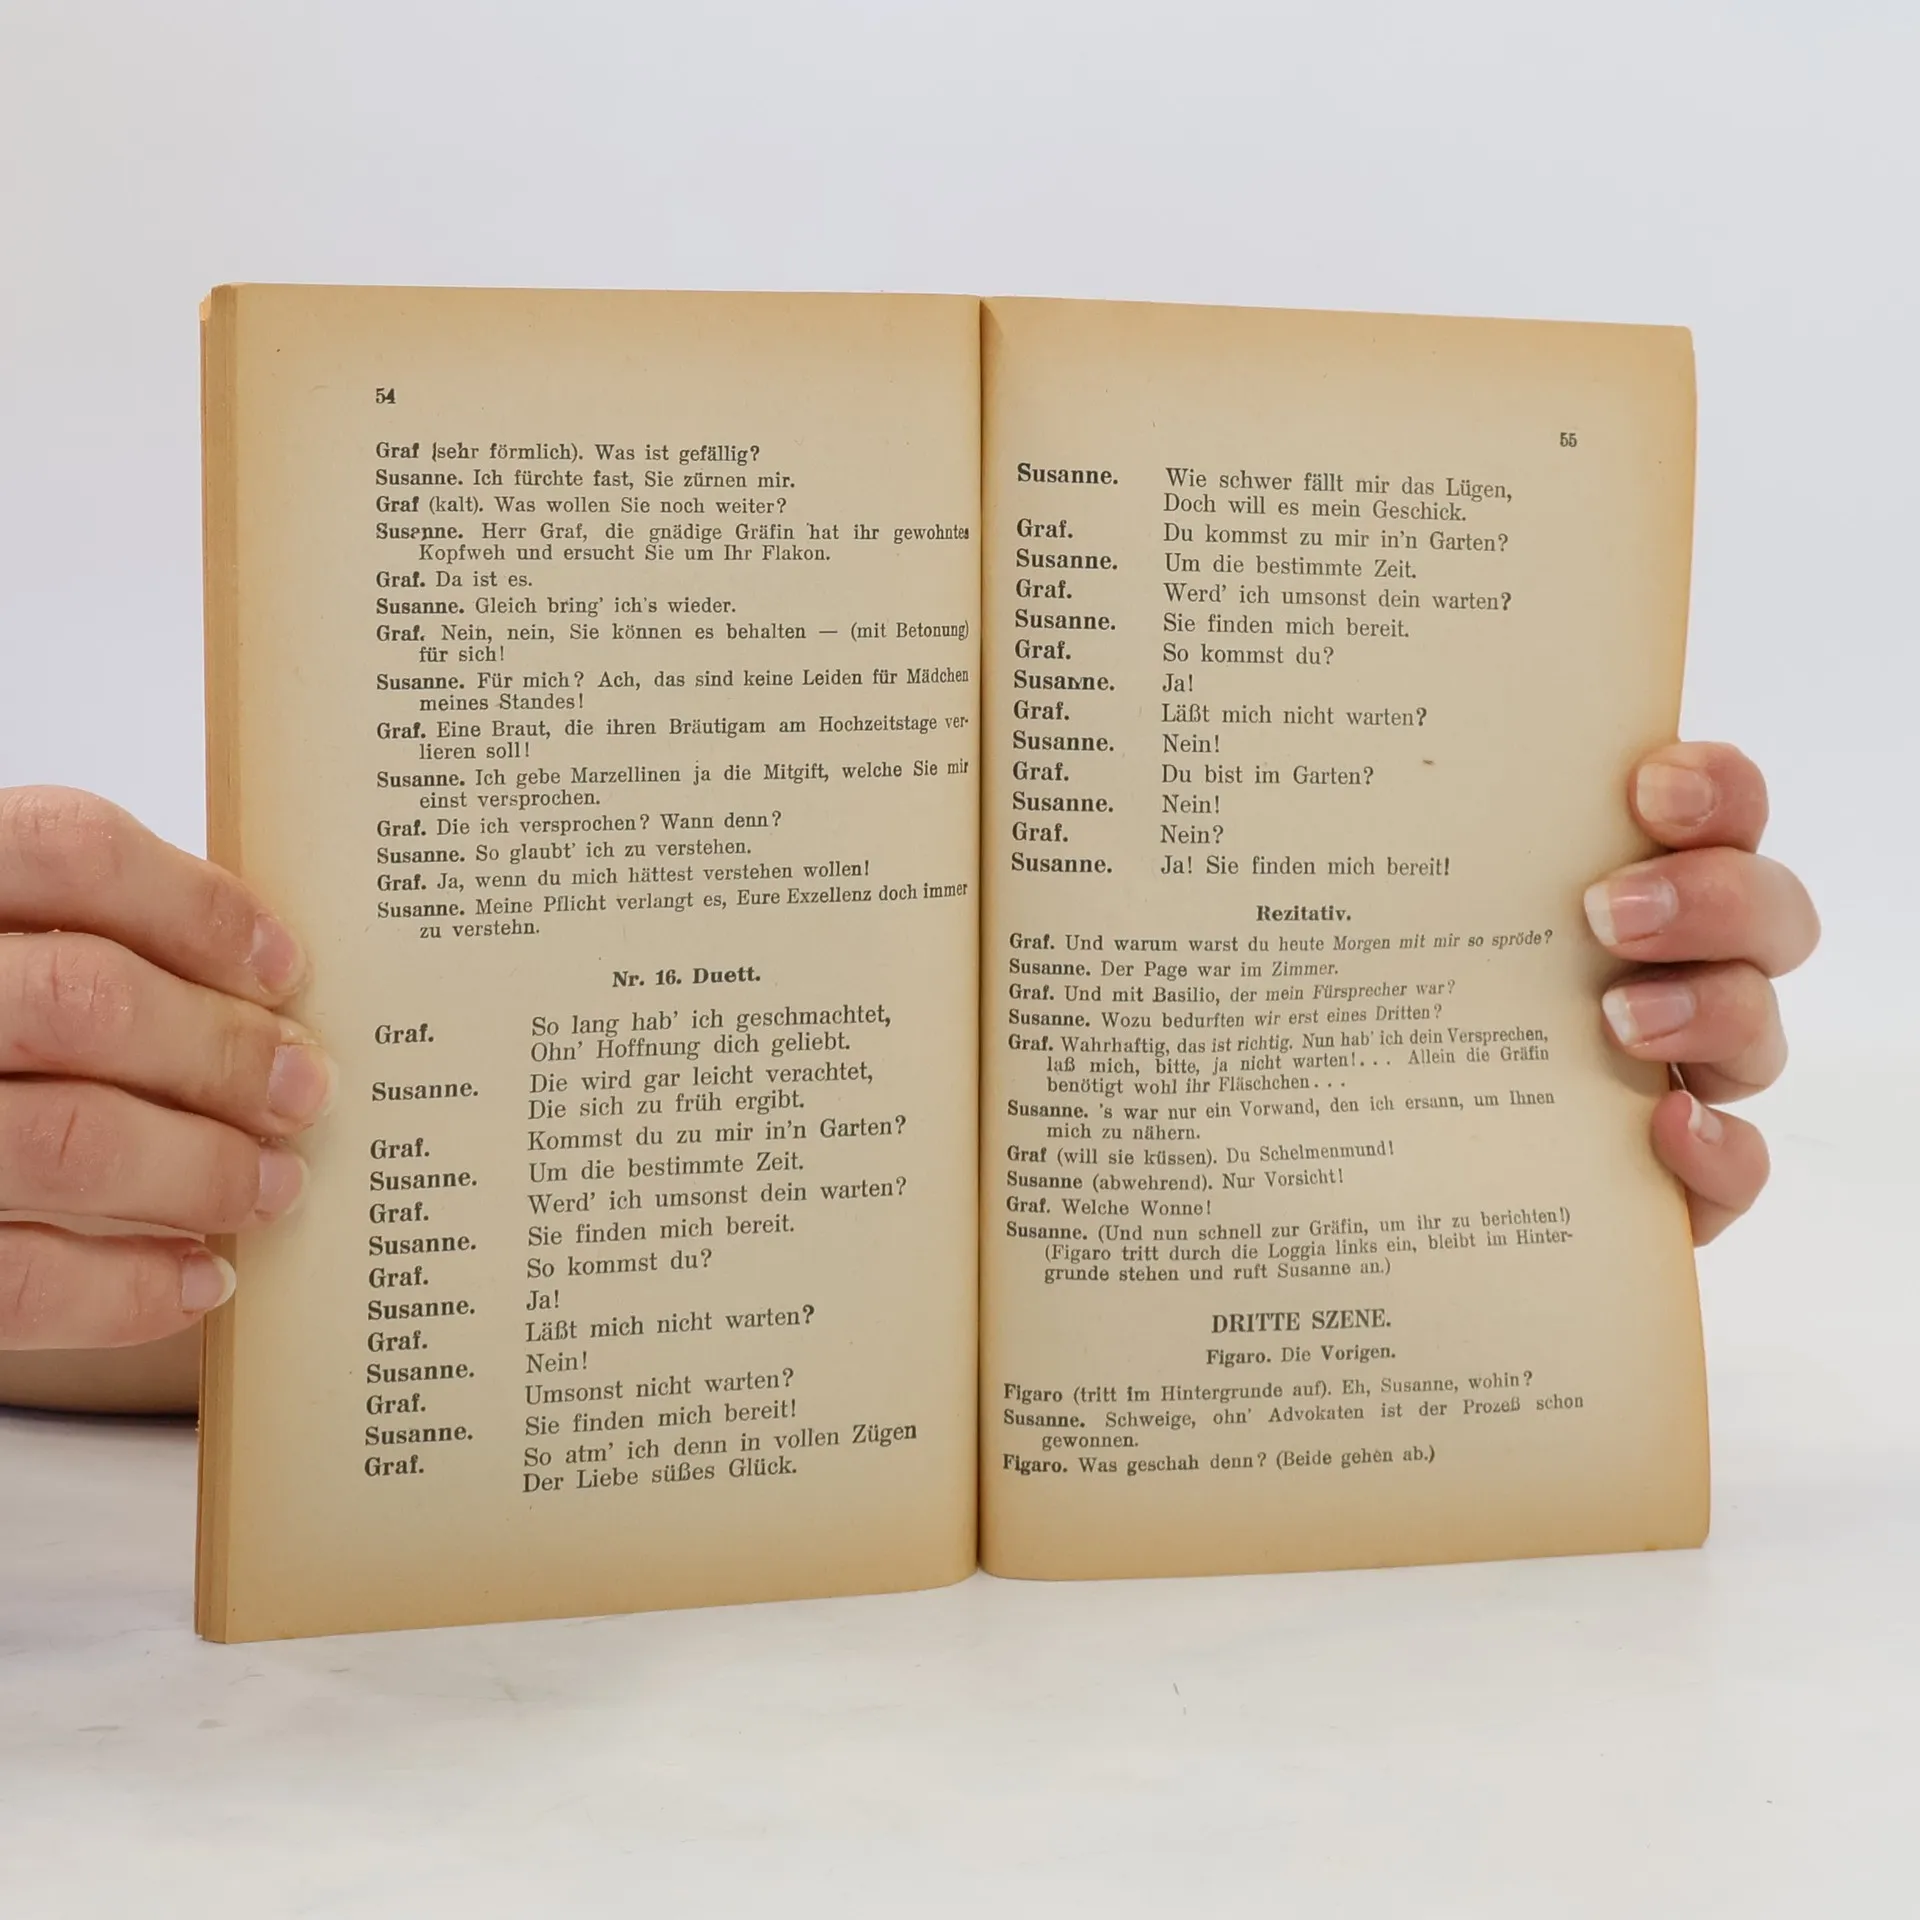 54
Graf (sehr förmlich). Was ist gefällig?
Susanne. Ich fürchte fast, Sie zürnen mir.
Graf (kalt). Was wollen Sie noch weiter?
Susanne. Herr Graf, die gnädige Gräfin hat ihr gewohntes
Kopfweh und ersucht Sie um Ihr Flakon.
Graf. Da ist es.
Susanne. Gleich bring' ich's wieder.
Graf. Nein, nein, Sie können es behalten — (mit Betonung)
für sich!
Susanne. Für mich? Ach, das sind keine Leiden für Mädchen
meines Standes!
Graf. Eine Braut, die ihren Bräutigam am Hochzeitstage ver-
lieren soll!
Susanne. Ich gebe Marzellinen ja die Mitgift, welche Sie mir
einst versprochen.
Graf. Die ich versprochen? Wann denn?
Susanne. So glaubt' ich zu verstehen.
Graf. Ja, wenn du mich hättest verstehen wollen!
Susanne. Meine Pflicht verlangt es, Eure Exzellenz doch immer
zu verstehn.
Nr. 16. Duett.
Graf. So lang hab' ich geschmachtet,
Ohn' Hoffnung dich geliebt.
Susanne. Die wird gar leicht verachtet,
Die sich zu früh ergibt.
Graf. Kommst du zu mir in'n Garten?
Susanne. Um die bestimmte Zeit.
Graf. Werd' ich umsonst dein warten?
Susanne. Sie finden mich bereit.
Graf. So kommst du?
Susanne. Ja!
Graf. Läßt mich nicht warten?
Susanne. Nein!
Graf. Umsonst nicht warten?
Susanne. Sie finden mich bereit!
Graf. So atm' ich denn in vollen Zügen
Der Liebe süßes Glück.
55
Susanne. Wie schwer fällt mir das Lügen,
Doch will es mein Geschick.
Graf. Du kommst zu mir in'n Garten?
Susanne. Um die bestimmte Zeit.
Graf. Werd' ich umsonst dein warten?
Susanne. Sie finden mich bereit.
Graf. So kommst du?
Susanne. Ja!
Graf. Läßt mich nicht warten?
Susanne. Nein!
Graf. Du bist im Garten?
Susanne. Nein!
Graf. Nein?
Susanne. Ja! Sie finden mich bereit!
Rezitativ.
Graf. Und warum warst du heute Morgen mit mir so spröde?
Susanne. Der Page war im Zimmer.
Graf. Und mit Basilio, der mein Fürsprecher war?
Susanne. Wozu bedurften wir erst eines Dritten?
Graf. Wahrhaftig, das ist richtig. Nun hab' ich dein Versprechen,
laß mich, bitte, ja nicht warten!... Allein die Gräfin
benötigt wohl ihr Fläschchen...
Susanne. 's war nur ein Vorwand, den ich ersann, um Ihnen
mich zu nähern.
Graf (will sie küssen). Du Schelmenmund!
Susanne (abwehrend). Nur Vorsicht!
Graf. Welche Wonne!
Susanne. (Und nun schnell zur Gräfin, um ihr zu berichten!)
(Figaro tritt durch die Loggia links ein, bleibt im Hinter-
grunde stehen und ruft Susanne an.)
DRITTE SZENE.
Figaro. Die Vorigen.
Figaro (tritt im Hintergrunde auf). Eh, Susanne, wohin?
Susanne. Schweige, ohn' Advokaten ist der Prozeß schon
gewonnen.
Figaro. Was geschah denn? (Beide gehen ab.)